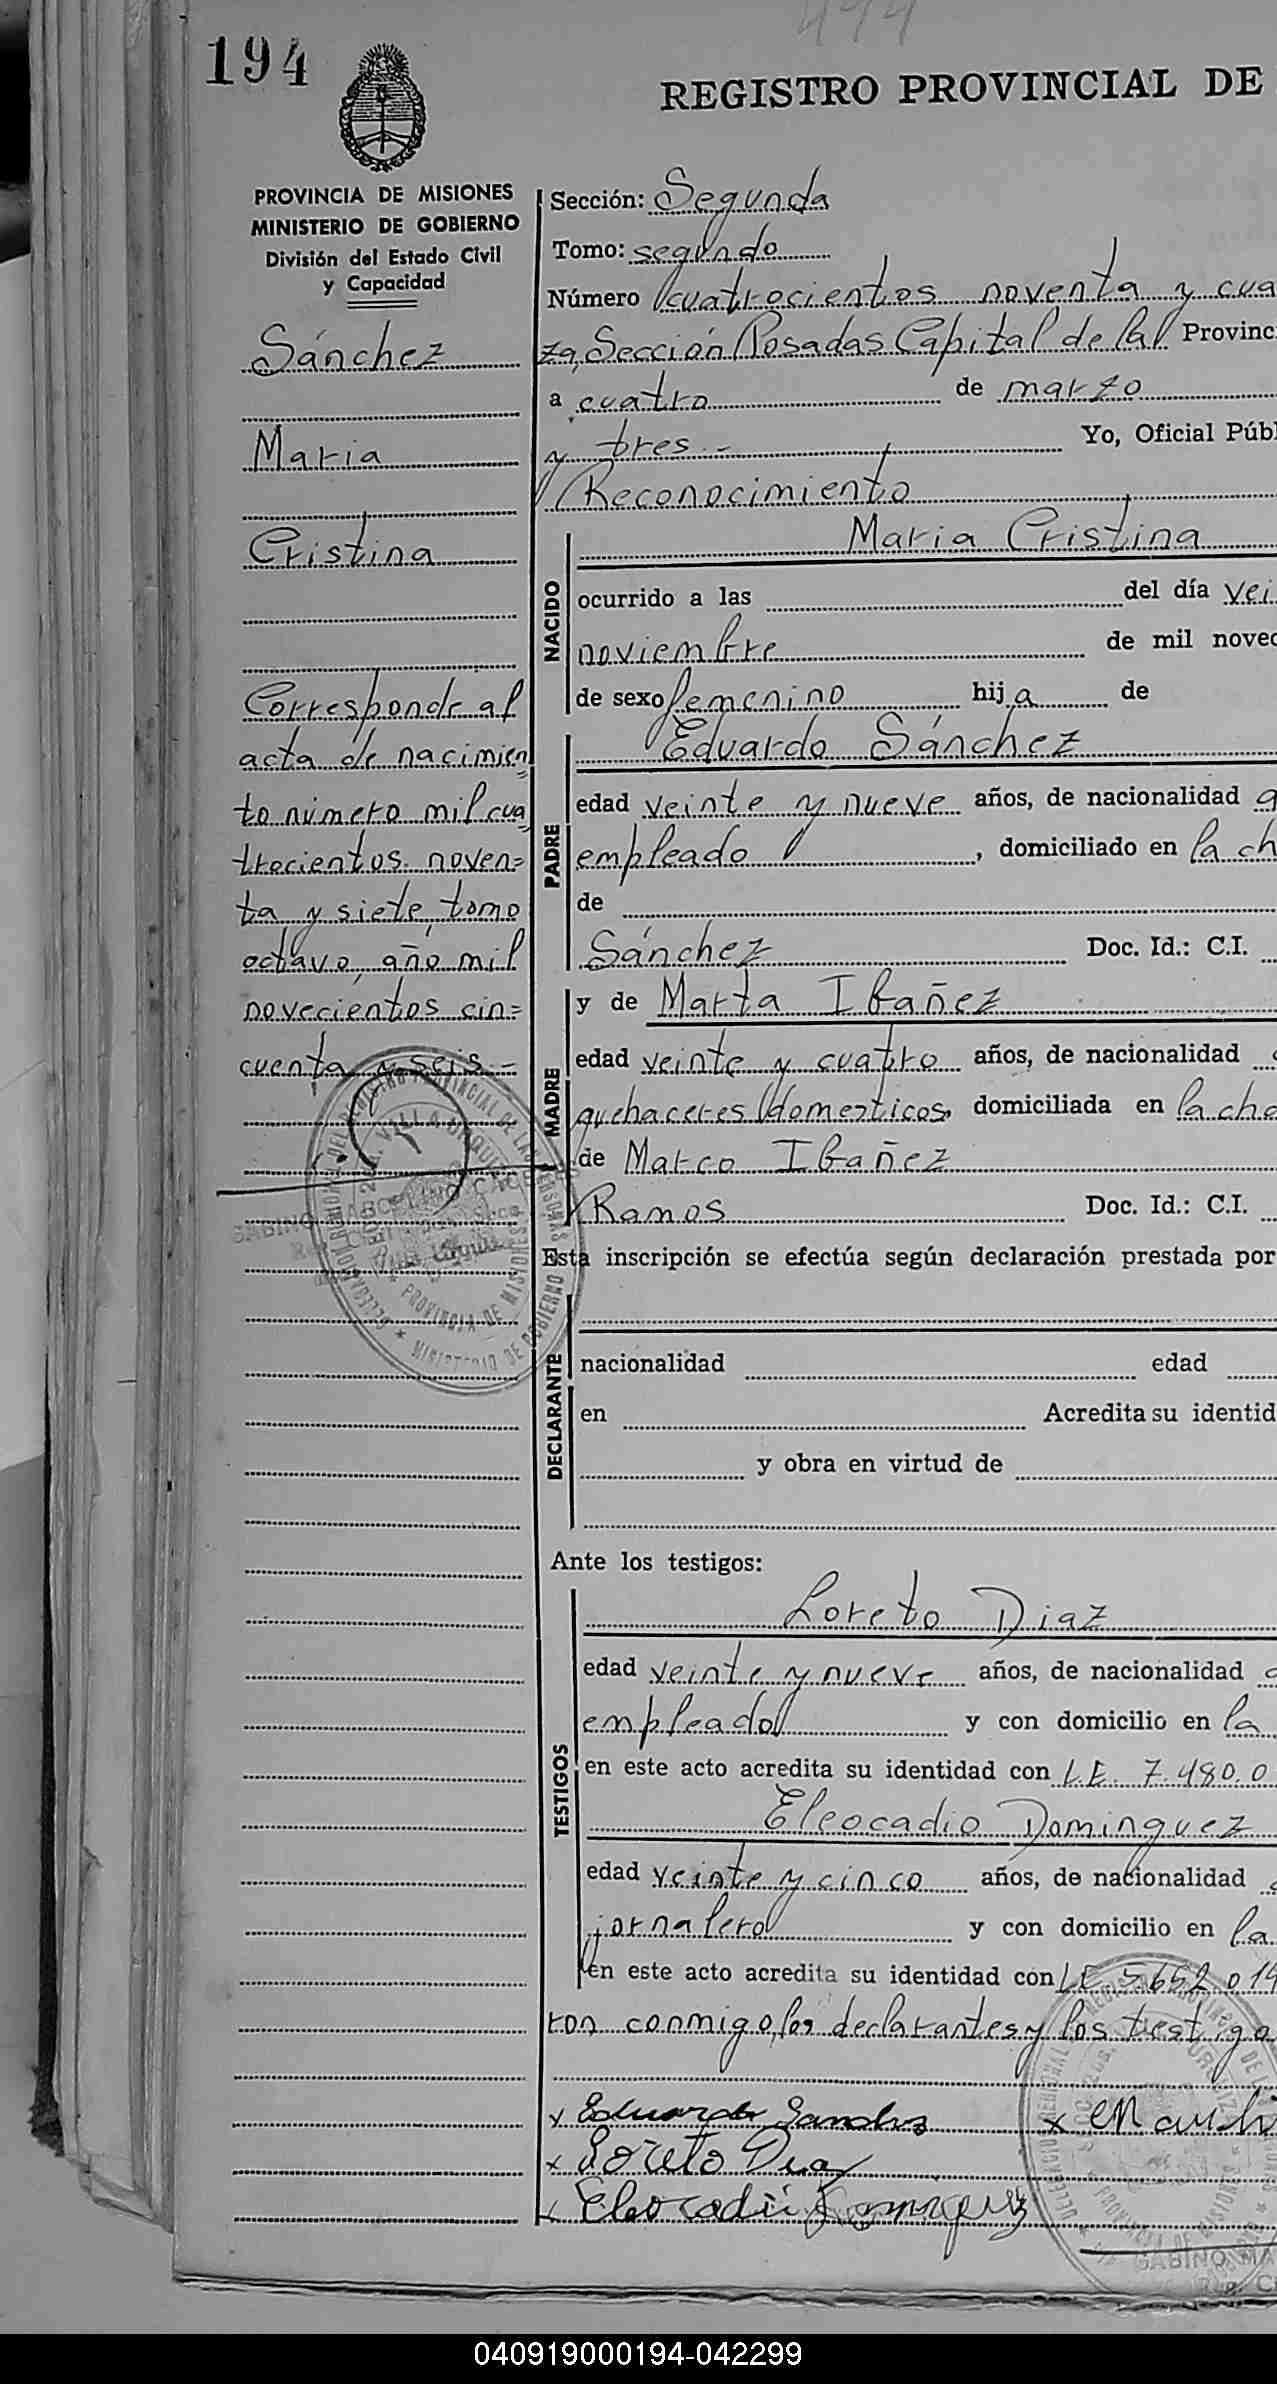 194
494
REGISTRO PROVINCIAL DE
PROVINCIA DE MISIONES
MINISTERIO DE GOBIERNO
División del Estado Civil
y Capacidad
Sánchez
Maria
Cristina
Corresponde al
acta de nacimien=
to número mil cua=
trocientos noven=
ta y siete, tomo
octavo, año mil
novecientos cin=
cuenta y seis.-
Sección: Segunda
Tomo: segundo
Número cuatrocientos noventa y cua
za, Sección Posadas Capital de la Provinc
a cuatro de marzo
y tres.- Yo, Oficial Públ
Reconocimiento
NACIDO
Maria Cristina
ocurrido a las del día vei
noviembre de mil novec
de sexo femenino hija de
PADRE
Eduardo Sánchez
edad veinte y nueve años, de nacionalidad a
empleado, domiciliado en la ch
de
Sánchez Doc. Id.: C.I.
MADRE
y de Marta Ibañez
edad veinte y cuatro años, de nacionalidad
quehaceres domesticos, domiciliada en la cha
de Marco Ibañez
Ramos Doc. Id.: C.I.
Esta inscripción se efectúa según declaración prestada por
DECLARANTE
nacionalidad edad
en Acredita su identid
y obra en virtud de
Ante los testigos:
TESTIGOS
Loreto Diaz
edad veinte y nueve años, de nacionalidad
empleado y con domicilio en la
en este acto acredita su identidad con L.E. 7.480.0
Eleocadio Dominguez
edad veinte y cinco años, de nacionalidad
jornalero y con domicilio en la
en este acto acredita su identidad con L.E. 5.652.014
ron conmigo, los declarantes y los testigo
x Eduardo Sanchez
x Loreto Diaz
x Eleocadio Dominguez
PROVINCIA DE MISIONES
MINISTERIO DE GOBIERNO
GABINO MA
040919000194-042299